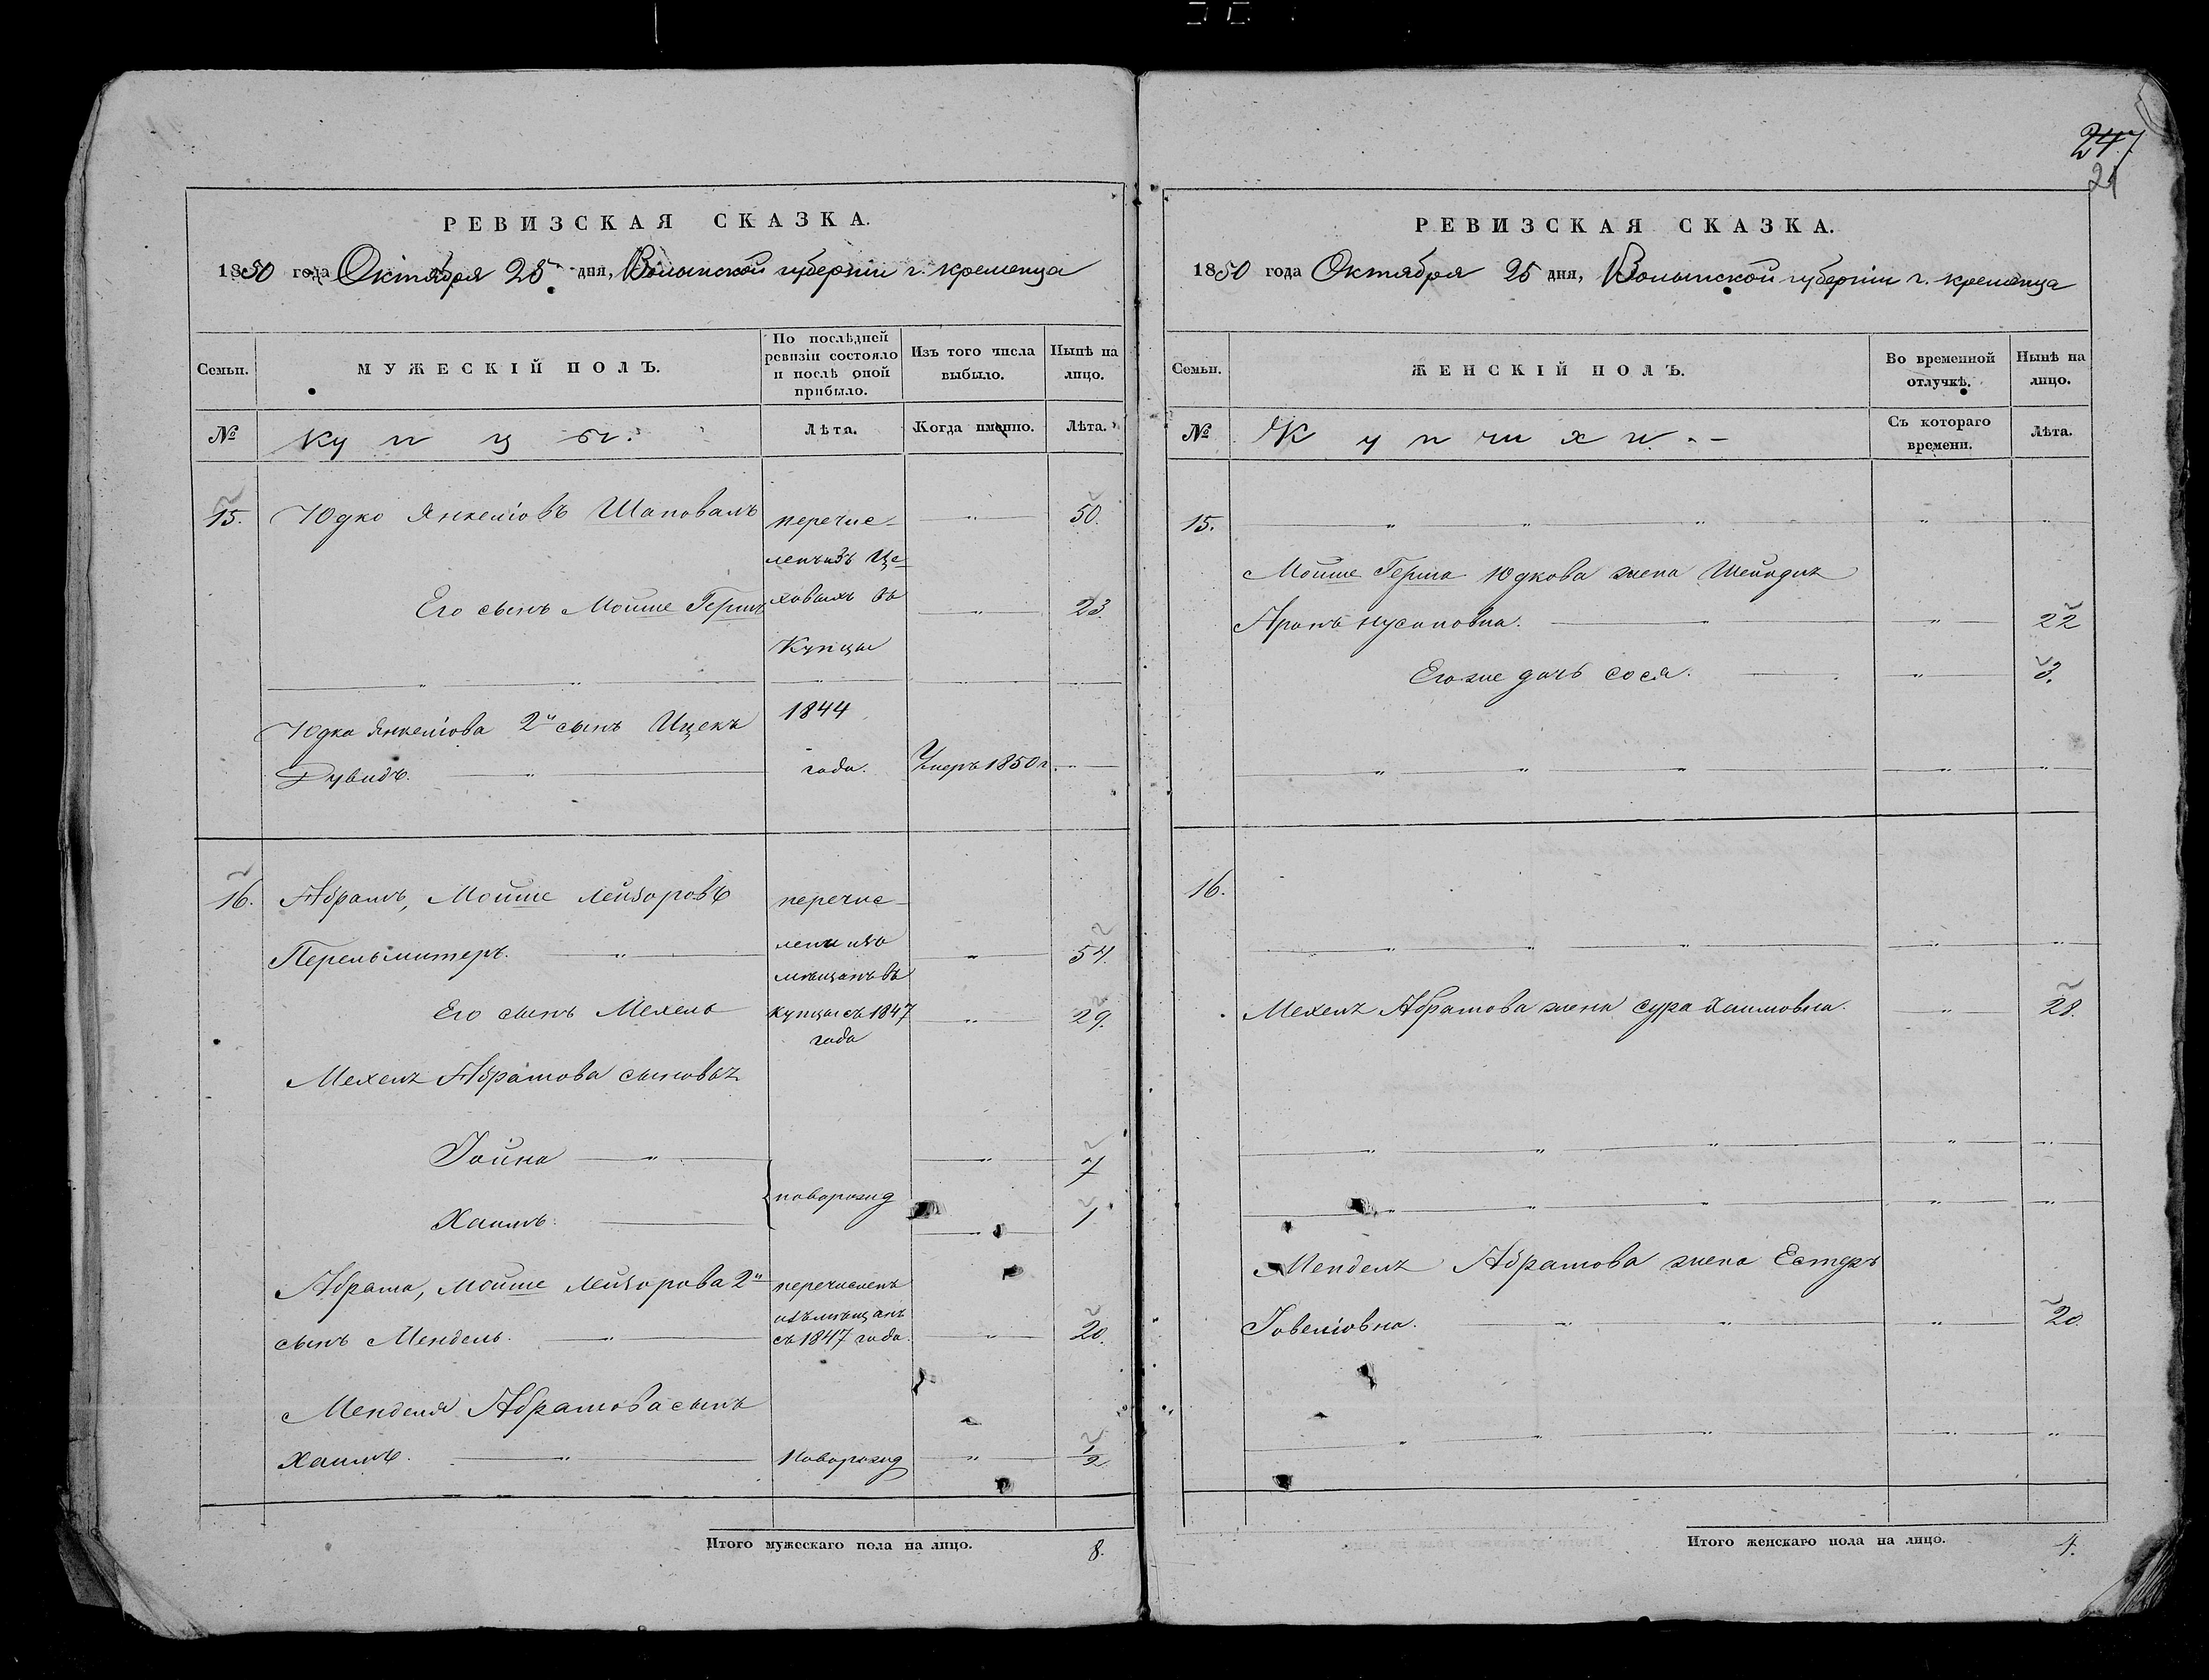 247
21
РЕВИЗСКАЯ СКАЗКА.
1850 года Октября 25 дня, Волынской губерніи г. кременца
Семьи.
МУЖЕСКІЙ ПОЛЪ.
По послѣдней ревизіи состояло и послѣ оной прибыло.
Изъ того числа выбыло.
Нынѣ на лицо.
№
Купцы.
Лѣта.
Когда именно.
Лѣта.
15. Юдко Янкеліовъ Шаповалъ перечис- 50.
ленъ изъ Це
Его сынъ Мошше Герш ховыхъ въ 23.
Купцы
Юдка Янкеліова 2й сынъ Ицекъ 1844
Дувидъ. года. Умеръ 1850 г.
16. Абрамъ, Мошше Лейзоровъ перечис-
Перельмитеръ. лены изъ 54.
мѣщанъ въ
Его сынъ Мехель купцы съ 1847 29.
года
Мехеля Абрамова сыновья
Іойна 7
новорожд
Хаимъ. 1
Абрама, Мошше Лейзорова 2й перечисленъ
изъ мѣщанъ
сынъ Мендель. съ 1847 года. 20.
Менделя Абрамова сынъ
Хаимъ. Новорожд 1/2
Итого мужескаго пола на лицо. 8.
РЕВИЗСКАЯ СКАЗКА.
1850 года Октября 25 дня, Волынской губерніи г. кременца
Семьи.
ЖЕНСКІЙ ПОЛЪ.
Во временной отлучкѣ.
Нынѣ на лицо.
№
Купчихи.
Съ котораго времени.
Лѣта.
15.
Мошше Герша Юдкова жена Шейндля
Аронъ Нусиновна. 22
Его же дочь Сося. 3.
16.
Мехеля Абрамова жена Сура Хаимовна. 28.
Менделя Абрамова жена Естеръ
Іовеліовна. 20.
Итого женскаго пола на лицо. 4.